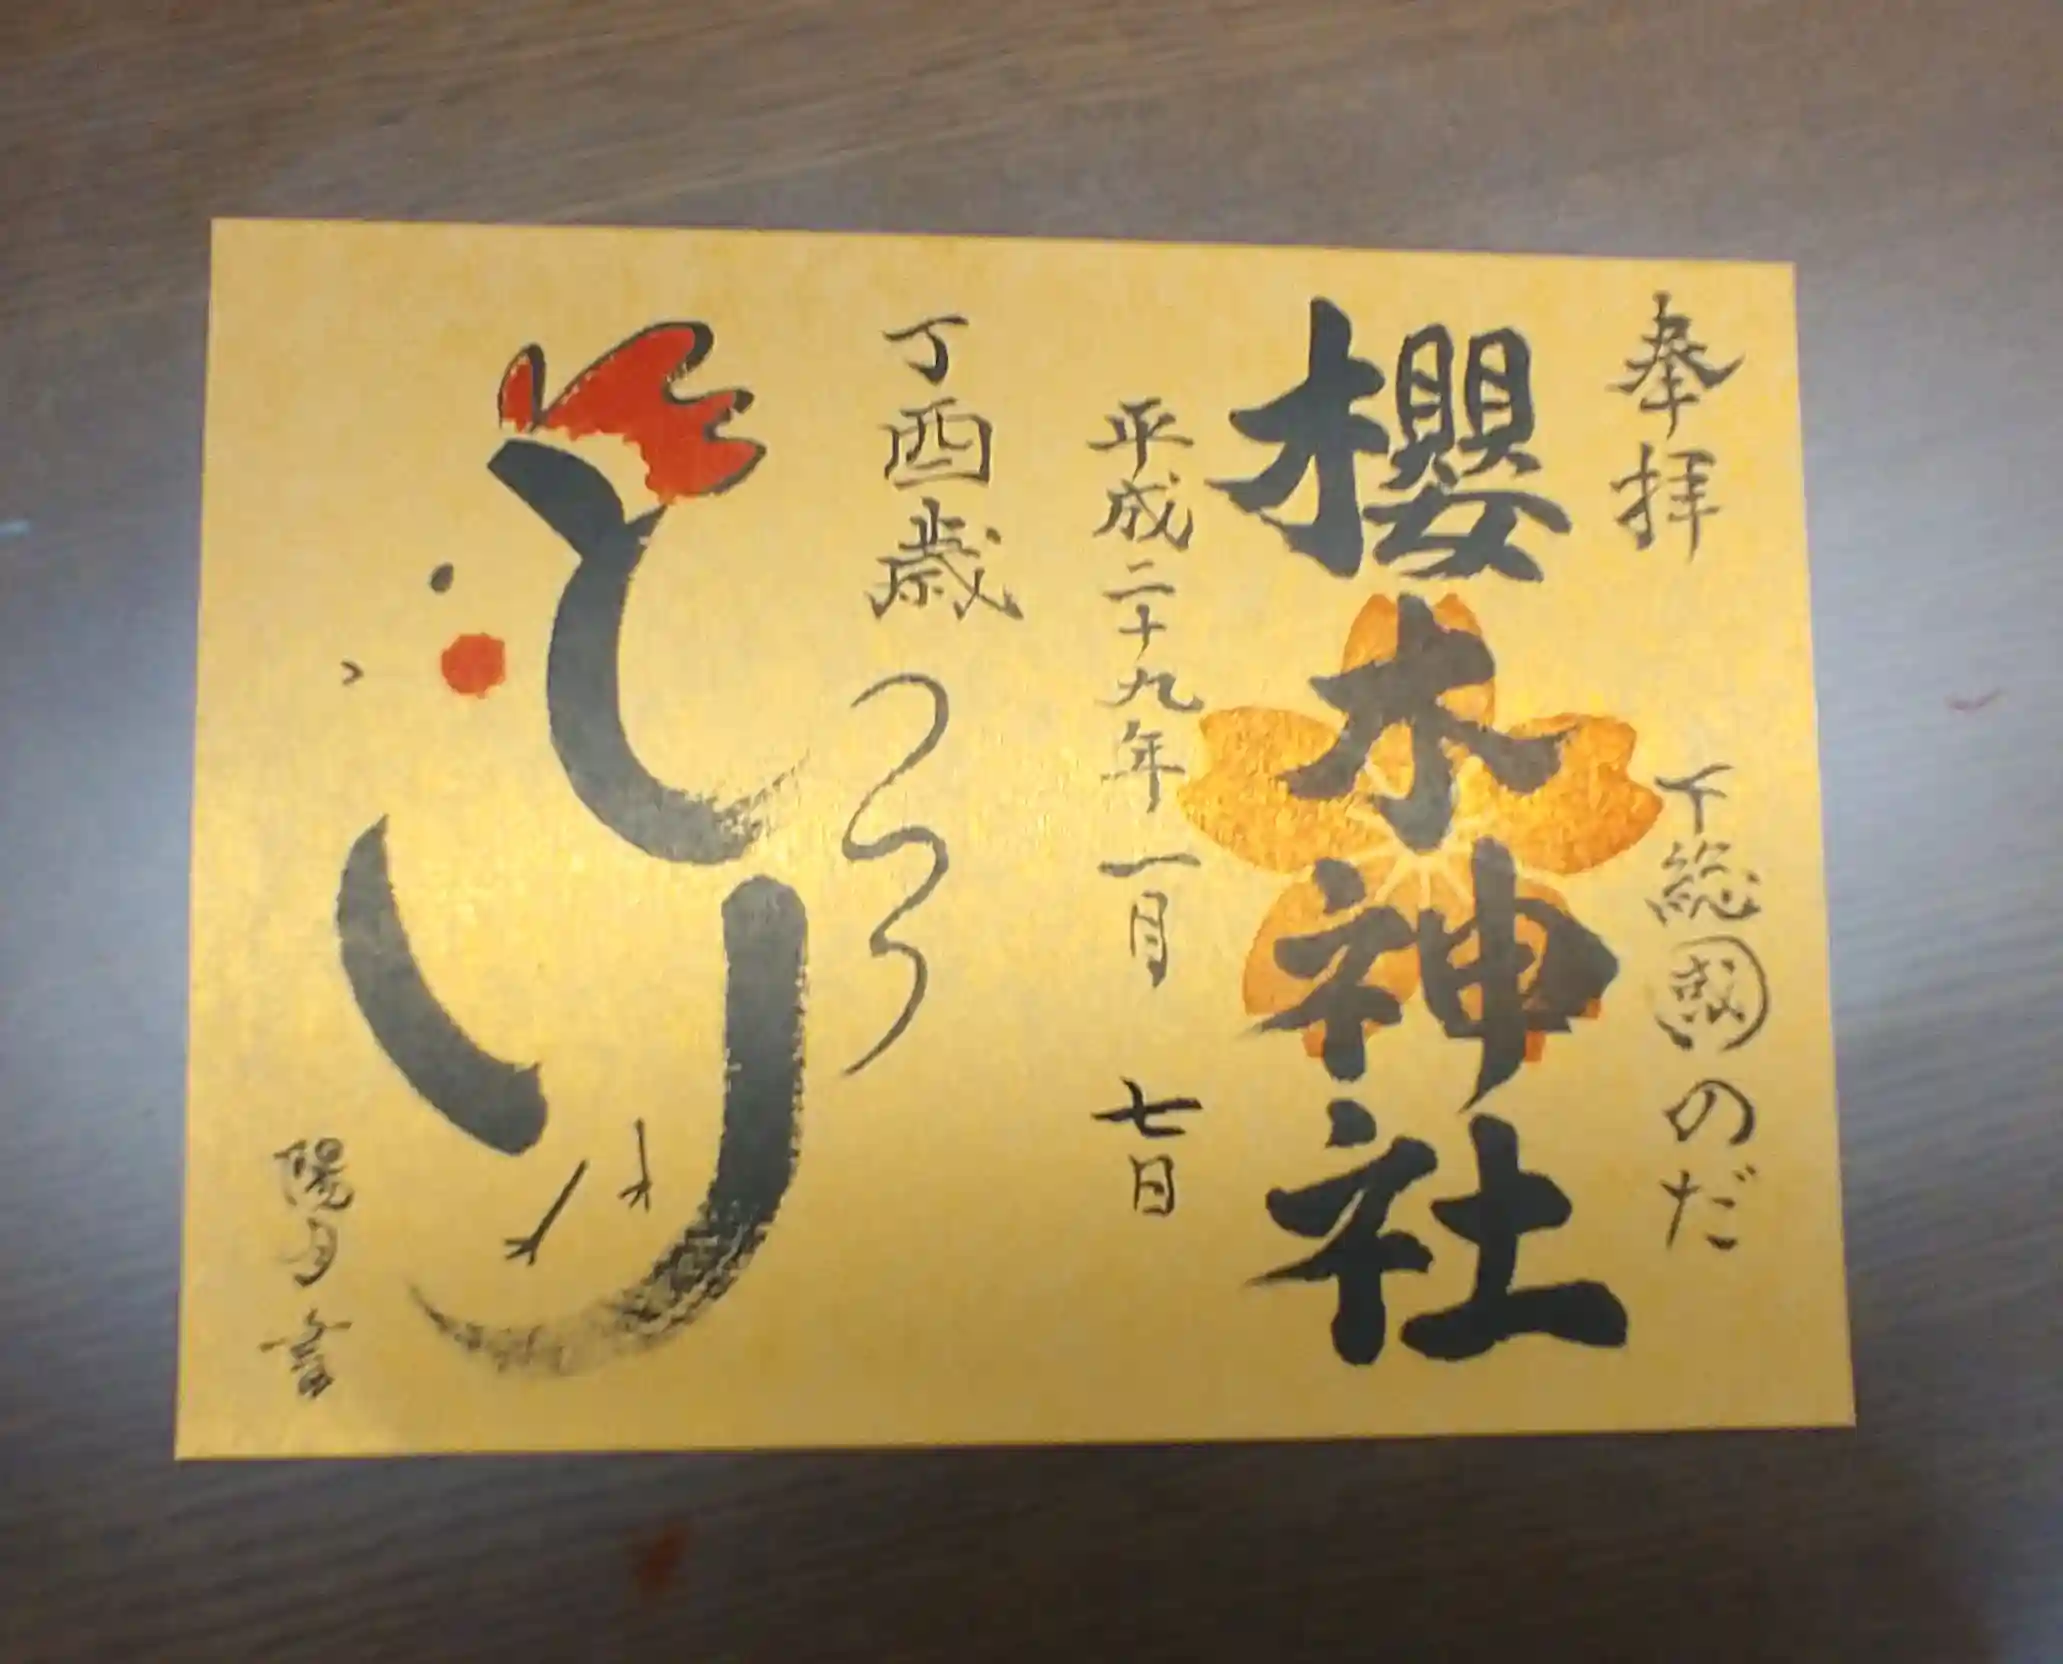 奉拝
下総國のだ
櫻木神社
平成二十九年一月七日
丁酉歳
とり
陽月書